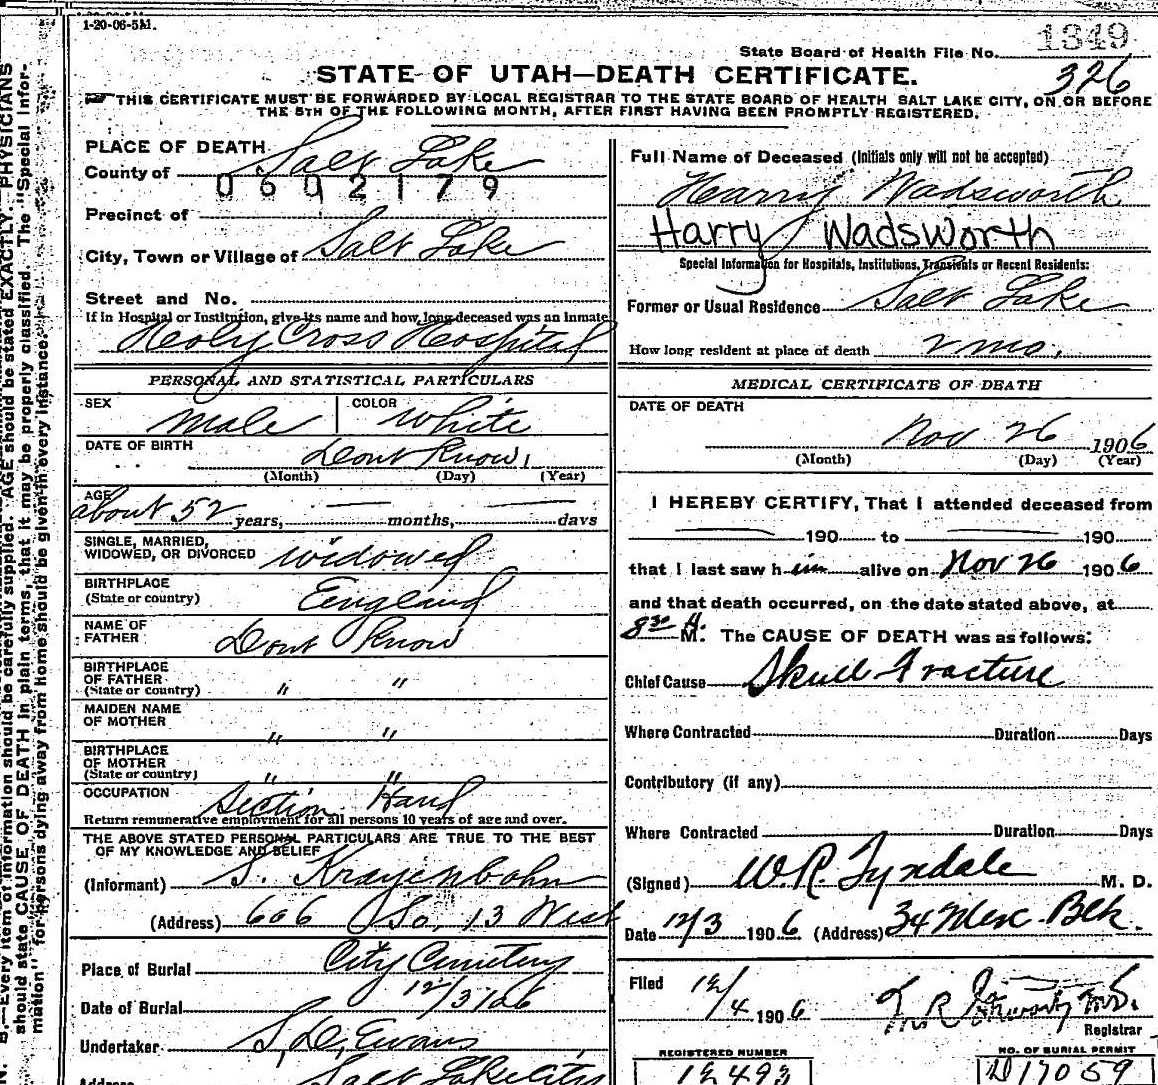 1-20-06-5M.
1349
State Board of Health File No.
326
STATE OF UTAH—DEATH CERTIFICATE.
THIS CERTIFICATE MUST BE FORWARDED BY LOCAL REGISTRAR TO THE STATE BOARD OF HEALTH SALT LAKE CITY, ON OR BEFORE
THE 5TH OF THE FOLLOWING MONTH, AFTER FIRST HAVING BEEN PROMPTLY REGISTERED.
PLACE OF DEATH
County of Salt Lake
0602179
Precinct of
City, Town or Village of Salt Lake
Street and No.
If in Hospital or Institution, give its name and how long deceased was an inmate
Holy Cross Hospital
PERSONAL AND STATISTICAL PARTICULARS
SEX Male COLOR White
DATE OF BIRTH Dont Know
(Month) (Day) (Year)
AGE about 52 years, — months, — days
SINGLE, MARRIED,
WIDOWED, OR DIVORCED widowed
BIRTHPLACE
(State or country) England
NAME OF
FATHER Dont Know
BIRTHPLACE
OF FATHER
(State or country) " "
MAIDEN NAME
OF MOTHER " "
BIRTHPLACE
OF MOTHER
(State or country) " "
OCCUPATION Section Hand
Return remunerative employment for all persons 10 years of age and over.
THE ABOVE STATED PERSONAL PARTICULARS ARE TRUE TO THE BEST
OF MY KNOWLEDGE AND BELIEF
(Informant) S. Krayenbohn
(Address) 606 So, 13 West
Place of Burial City Cemetery
Date of Burial 12/3/06
Undertaker S, D, Evans
Address Salt Lake City
Full Name of Deceased (Initials only will not be accepted)
Harry Wadsworth
Harry Wadsworth
Special Information for Hospitals, Institutions, Transients or Recent Residents:
Former or Usual Residence Salt Lake
How long resident at place of death 2 mo.
MEDICAL CERTIFICATE OF DEATH
DATE OF DEATH
Nov 26 1906
(Month) (Day) (Year)
I HEREBY CERTIFY, That I attended deceased from
— 190 to — 190
that I last saw him alive on Nov 26 1906
and that death occurred, on the date stated above, at
8 30 A. M. The CAUSE OF DEATH was as follows:
Chief Cause Skull Fracture
Where Contracted Duration Days
Contributory (if any)
Where Contracted Duration Days
(Signed) W.R. Tyndale M. D.
Date 12/3 1906 (Address) 34 Merc Blk.
Filed 12/4 1906
Registrar
REGISTERED NUMBER
12493
NO. OF BURIAL PERMIT
D17059
N. B.—Every item of information should be carefully supplied. AGE should be stated EXACTLY. PHYSICIANS
should state CAUSE OF DEATH in plain terms, that it may be properly classified. The "Special Infor-
mation" for persons dying away from home should be given in every instance.